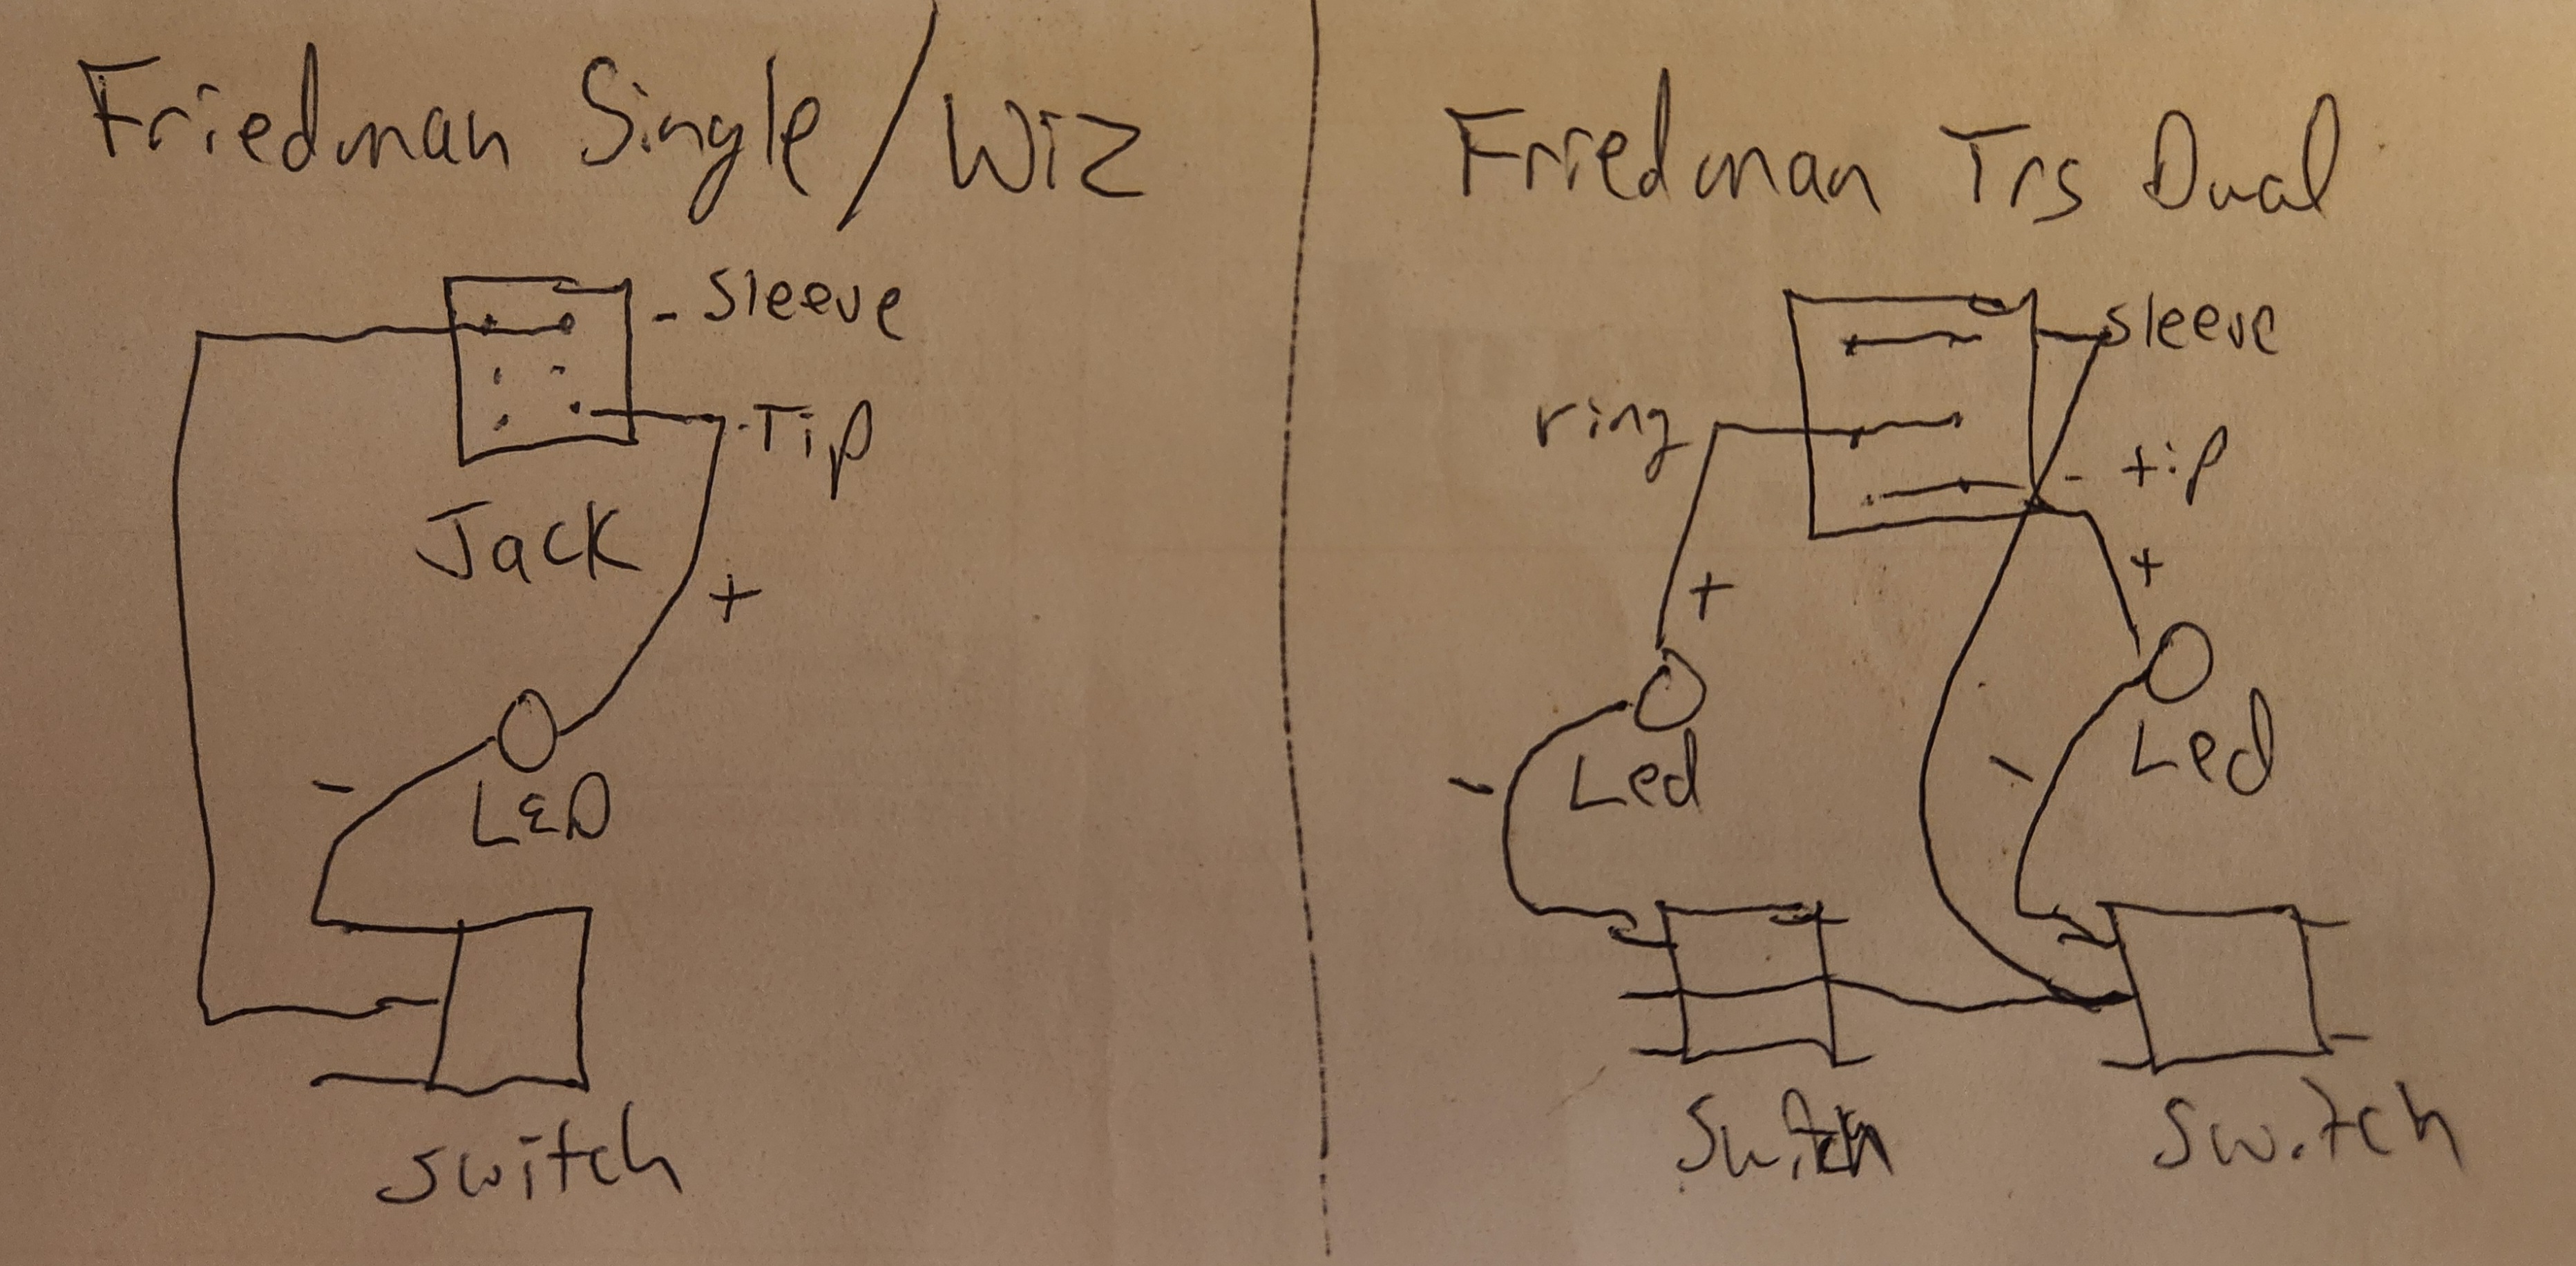 Friedman Single/Wiz
- Sleeve
- Tip
Jack
+
-
LED
Switch
Friedman Trs Dual
Sleeve
ring
- tip
+
+
-
Led
-
Led
Switch
Switch